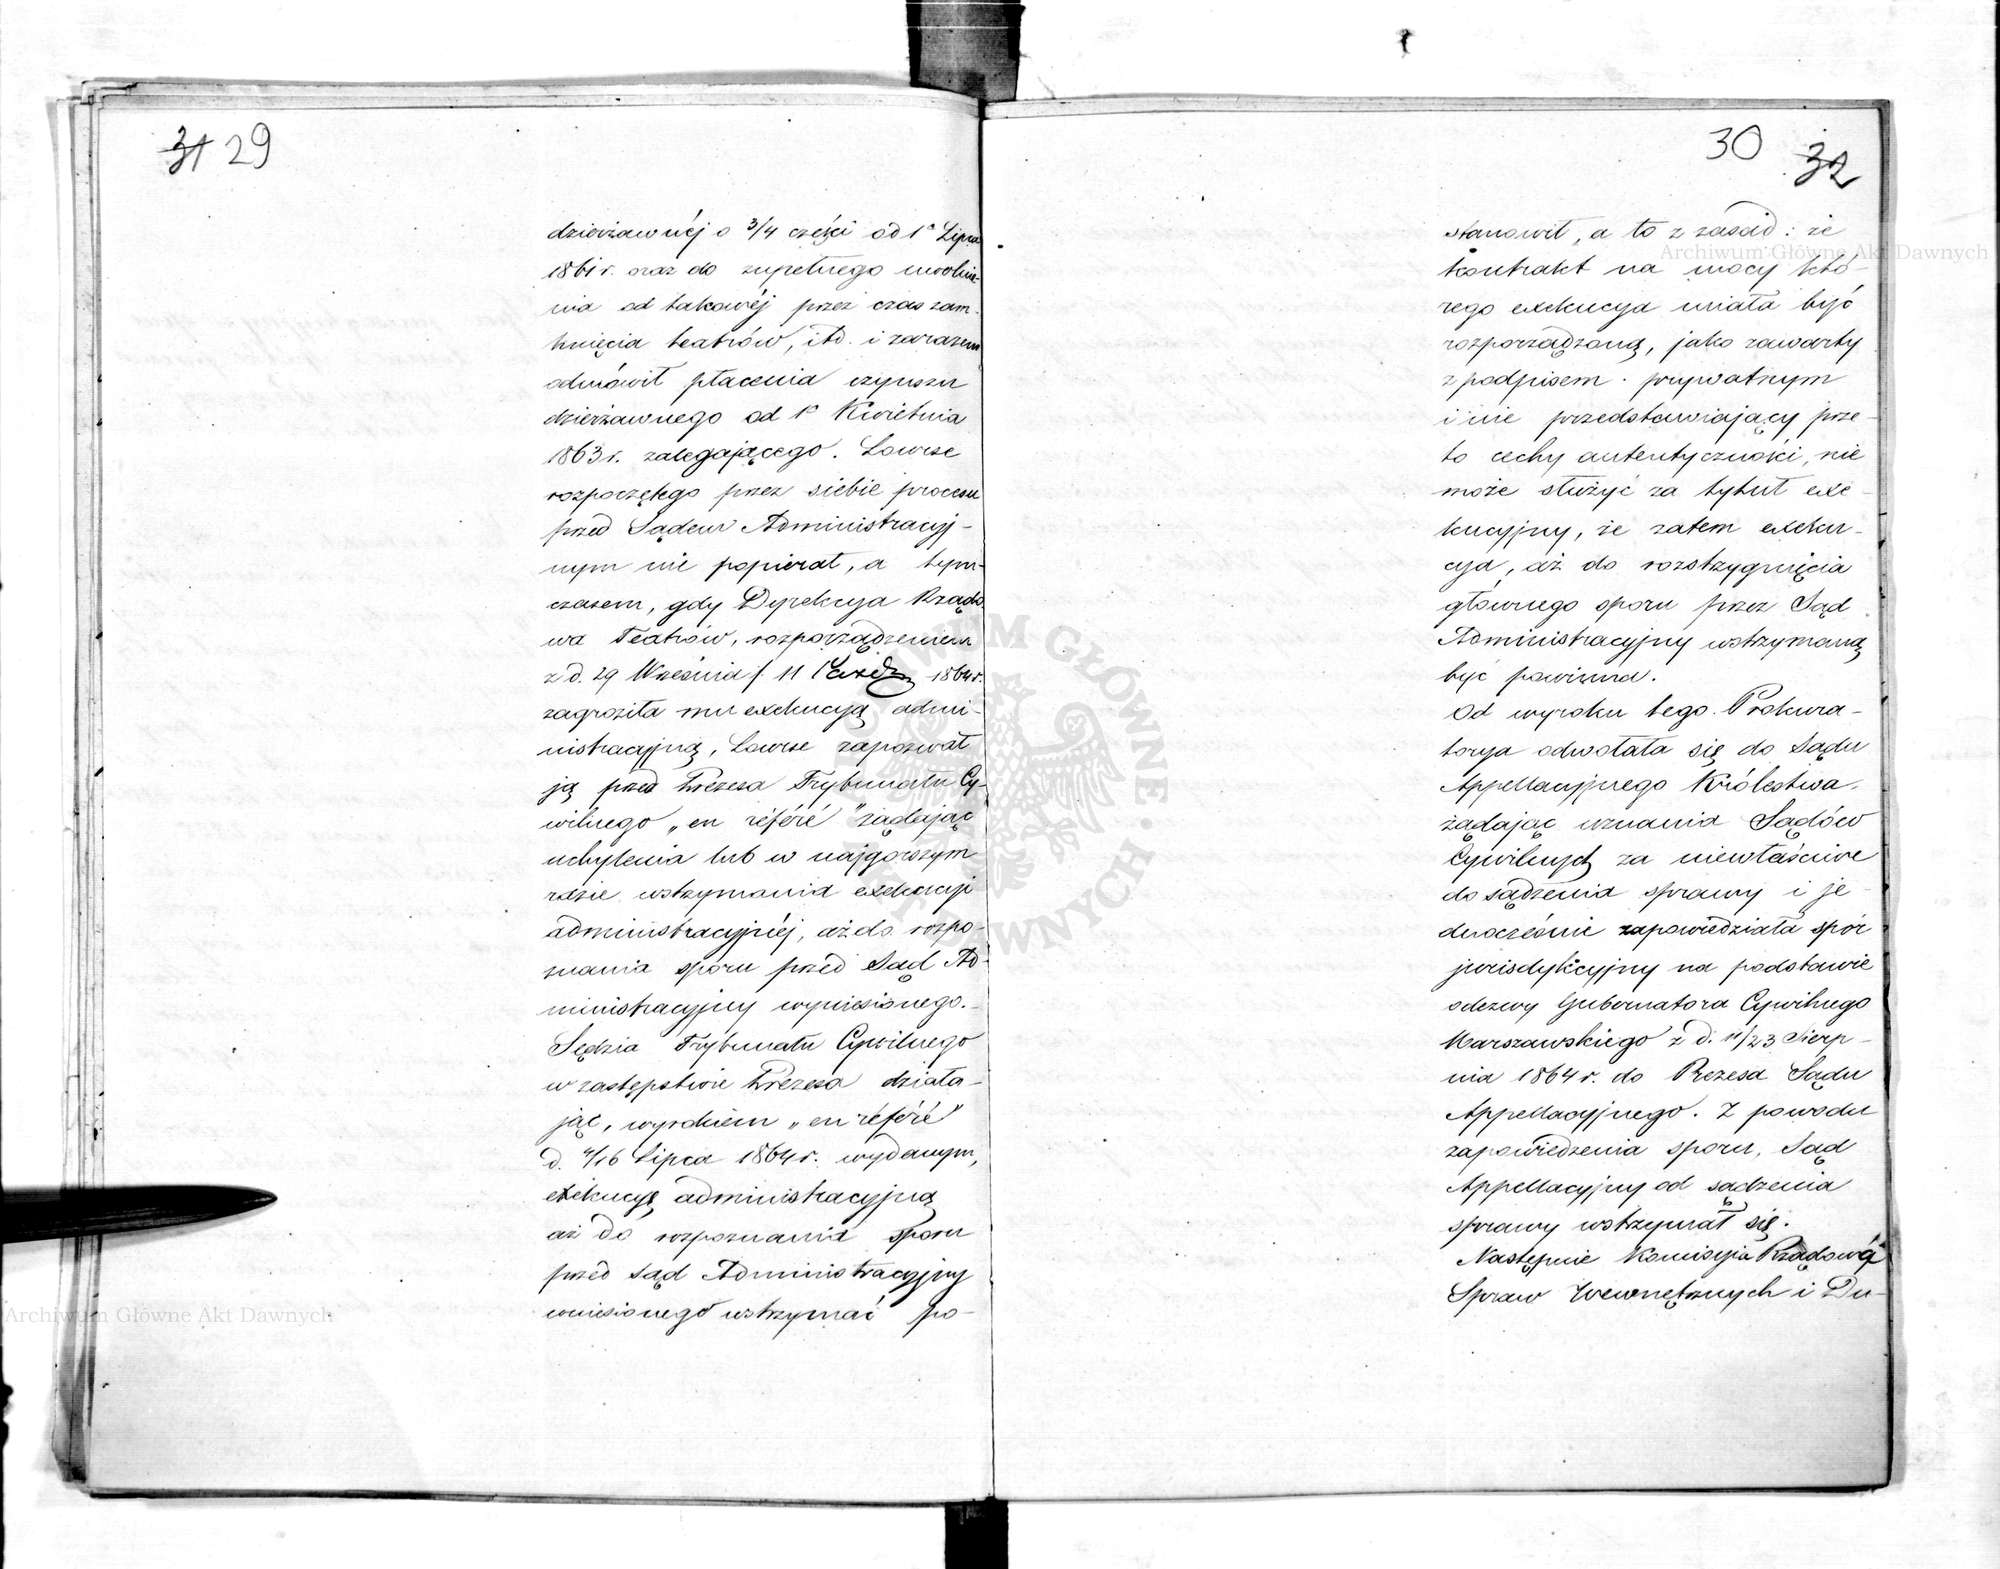 31 29
dzierżawnéj o 3/4 części od 1o Lipca
1861 r. oraz do zupełnego uwolnie-
nia od takowéj przez czas zam-
knięcia teatrów, itd. i zarazem
odmówił płacenia czynszu
dzierżawnego od 1o Kwietnia
1863 r. zalegającego. Lourse
rozpoczętego przez siebie procesu
przed Sądem Administracyj-
nym nie popierał, a tym-
czasem, gdy Dyrekcya Rządo-
wa Teatrów, rozporządzeniem
z d. 29 Września / 11 Paźdz 1864 r.
zagroziła mu exekucyą admi-
nistracyjną, Lourse zapozwał
ją przed Prezesa Trybunału Cy-
wilnego „en référé" żądając
uchylenia lub w najgorszym
razie wstrzymania exekucyi
administracyjnéj, aż do rozpo-
znania sporu przed Sąd Ad-
ministracyjny wyniesionego.
Sędzia Trybunału Cywilnego
w zastępstwie Prezesa działa-
jąc, wyrokiem „en référé"
d. 4/16 Lipca 1864 r. wydanym,
exekucyę administracyjną
aż do rozpoznania sporu
przed Sąd Administracyjny
wniesionego wstrzymać po-
30 32
stanowił, a to z zasad: że
kontrakt na mocy któ-
rego exekucya miała być
rozporządzoną, jako zawarty
z podpisem prywatnym
i nie przedstawiający prze-
to cechy autentyczności, nie
może służyć za tytuł exe-
kucyjny, że zatem exeku-
cya, aż do rozstrzygnięcia
głównego sporu przez Sąd
Administracyjny wstrzymaną
być powinna.
Od wyroku tego Prokura-
torya odwołała się do Sądu
Appellacyjnego Królestwa,
żądając uznania Sądów
Cywilnych za niewłaściwe
do sądzenia sprawy i je-
dnocześnie zapowiedziała spór
jurisdykcyjny na podstawie
odezwy Gubernatora Cywilnego
Warszawskiego z d. 11/23 Sierp-
nia 1864 r. do Prezesa Sądu
Appellacyjnego. Z powodu
zapowiedzenia sporu, Sąd
Appellacyjny od sądzenia
sprawy wstrzymał się.
Następnie Komisyja Rządowa
Spraw Wewnętrznych i Du-
Archiwum Główne Akt Dawnych
Archiwum Główne Akt Dawnych